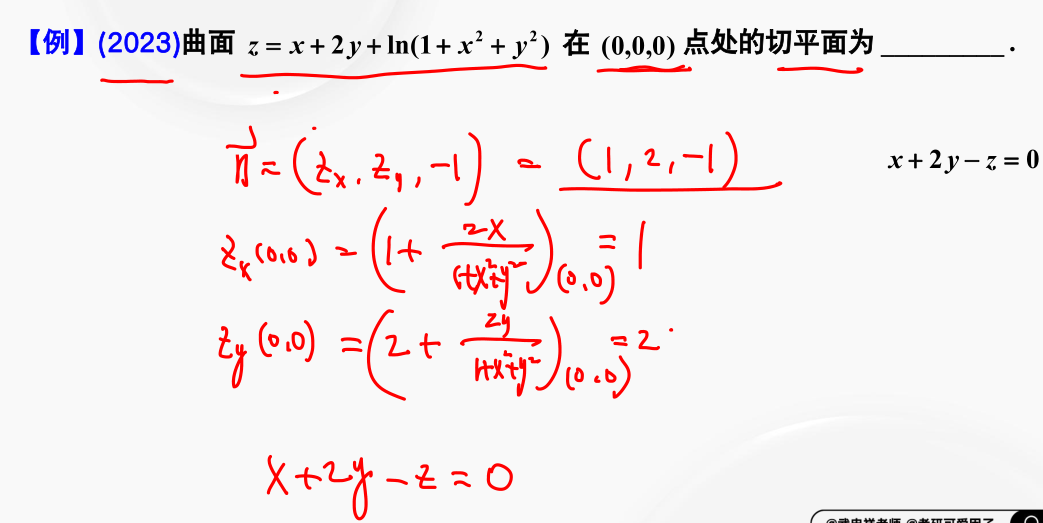 【例】(2023)曲面 z = x + 2y + ln(1 + x² + y²) 在 (0,0,0) 点处的切平面为 ________ .
n⃗ = (z_x, z_y, -1) = (1, 2, -1)
x + 2y − z = 0
z_x(0,0) = (1 + 2x/(1+x²+y²))_(0,0) = 1
z_y(0,0) = (2 + 2y/(1+x²+y²))_(0,0) = 2
x + 2y - z = 0